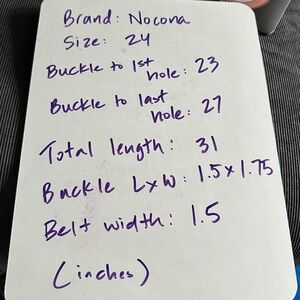 Brand: Nocona
Size: 24
Buckle to 1st
hole: 23
Buckle to last
hole: 27
Total length: 31
Buckle LxW: 1.5x1.75
Belt width: 1.5
(inches)